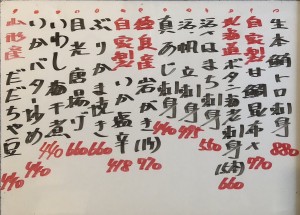 生本鮪トロ刺身 880
自家製 〆甘鯛昆布〆 770
北海道産 ボタン海老刺身 (1本) 660
活〆はまち刺身 550
活〆帆立刺身 495
真あじ刺身 440
奈良産 岩がき (1ヶ) 770
自家製 いか塩辛 418
ぶりかま焼き 660
目光唐揚げ 660
いわし梅干煮 440
いかバター炒め 440
山形産 だだちゃ豆 440